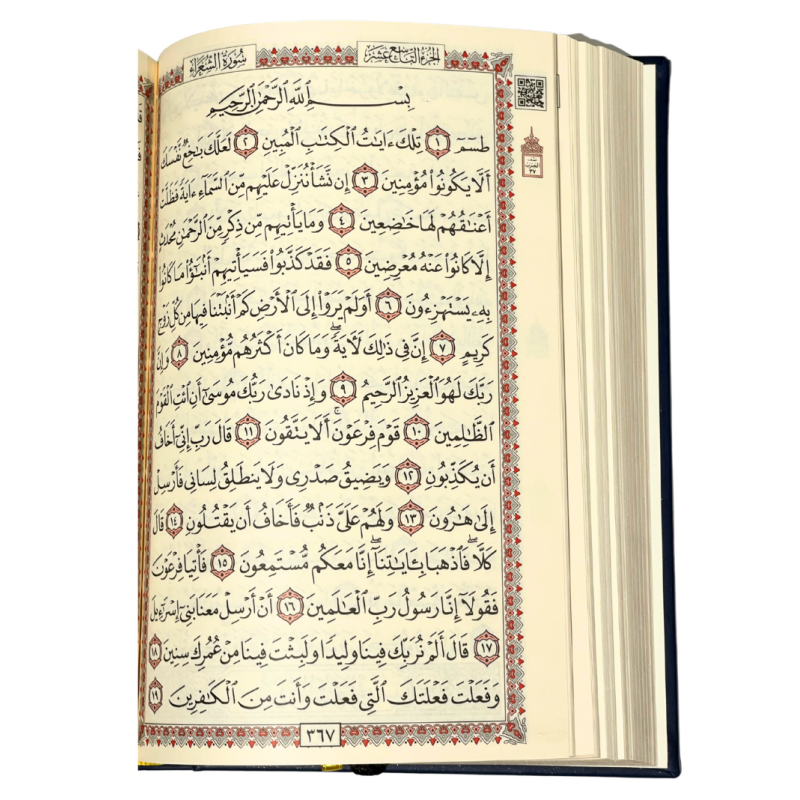 سُورَةُ الشُّعَرَاءِ
الجُزءُ التَّاسِعَ عَشَرَ
بِسْمِ ٱللَّهِ ٱلرَّحْمَٰنِ ٱلرَّحِيمِ
طسٓمٓ ١ تِلْكَ ءَايَٰتُ ٱلْكِتَٰبِ ٱلْمُبِينِ ٢ لَعَلَّكَ بَٰخِعٌ نَّفْسَكَ
أَلَّا يَكُونُوا۟ مُؤْمِنِينَ ٣ إِن نَّشَأْ نُنَزِّلْ عَلَيْهِم مِّنَ ٱلسَّمَآءِ ءَايَةً فَظَلَّتْ
أَعْنَٰقُهُمْ لَهَا خَٰضِعِينَ ٤ وَمَا يَأْتِيهِم مِّن ذِكْرٍ مِّنَ ٱلرَّحْمَٰنِ مُحْدَثٍ
إِلَّا كَانُوا۟ عَنْهُ مُعْرِضِينَ ٥ فَقَدْ كَذَّبُوا۟ فَسَيَأْتِيهِمْ أَنۢبَٰٓؤُا۟ مَا كَانُوا۟
بِهِۦ يَسْتَهْزِءُونَ ٦ أَوَلَمْ يَرَوْا۟ إِلَى ٱلْأَرْضِ كَمْ أَنۢبَتْنَا فِيهَا مِن كُلِّ زَوْجٍ
كَرِيمٍ ٧ إِنَّ فِى ذَٰلِكَ لَءَايَةً ۖ وَمَا كَانَ أَكْثَرُهُم مُّؤْمِنِينَ ٨ وَإِنَّ
رَبَّكَ لَهُوَ ٱلْعَزِيزُ ٱلرَّحِيمُ ٩ وَإِذْ نَادَىٰ رَبُّكَ مُوسَىٰٓ أَنِ ٱئْتِ ٱلْقَوْمَ
ٱلظَّٰلِمِينَ ١٠ قَوْمَ فِرْعَوْنَ ۚ أَلَا يَتَّقُونَ ١١ قَالَ رَبِّ إِنِّىٓ أَخَافُ
أَن يُكَذِّبُونِ ١٢ وَيَضِيقُ صَدْرِى وَلَا يَنطَلِقُ لِسَانِى فَأَرْسِلْ
إِلَىٰ هَٰرُونَ ١٣ وَلَهُمْ عَلَىَّ ذَنۢبٌ فَأَخَافُ أَن يَقْتُلُونِ ١٤ قَالَ
كَلَّا ۖ فَٱذْهَبَا بِـَٔايَٰتِنَآ ۖ إِنَّا مَعَكُم مُّسْتَمِعُونَ ١٥ فَأْتِيَا فِرْعَوْنَ
فَقُولَآ إِنَّا رَسُولُ رَبِّ ٱلْعَٰلَمِينَ ١٦ أَنْ أَرْسِلْ مَعَنَا بَنِىٓ إِسْرَٰٓءِيلَ
١٧ قَالَ أَلَمْ نُرَبِّكَ فِينَا وَلِيدًا وَلَبِثْتَ فِينَا مِنْ عُمُرِكَ سِنِينَ ١٨
وَفَعَلْتَ فَعْلَتَكَ ٱلَّتِى فَعَلْتَ وَأَنتَ مِنَ ٱلْكَٰفِرِينَ ١٩
٣٦٧